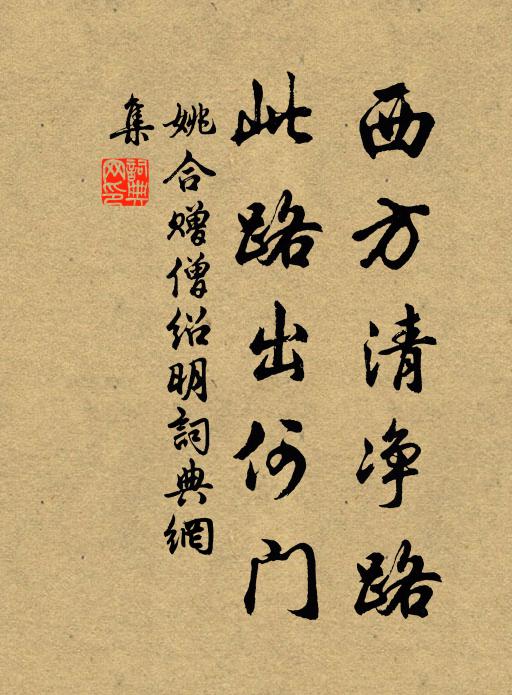 西方清净路
此路出何门
姚合赠僧绍明詞典網
集
詞典
网印